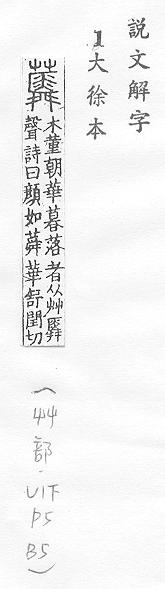 説文解字
1大徐本
蕣
木堇朝華暮落者从艸䑞
聲詩曰顏如蕣華舒閏切
(艸部.V1下 P5 B5)